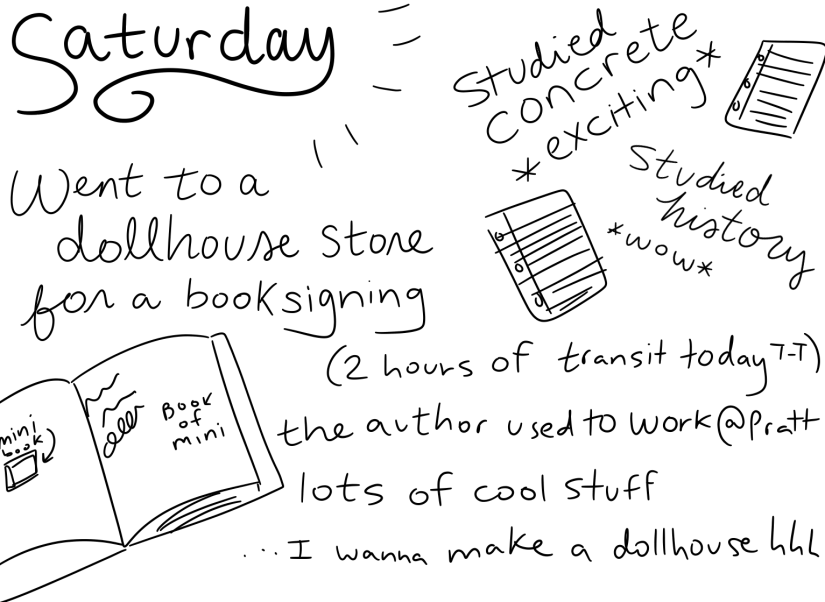 Saturday
Studied
concrete
*exciting*
Studied
history
*wow*
Went to a
dollhouse store
for a booksigning
(2 hours of transit today T-T)
the author used to work @Pratt
lots of cool stuff
...I wanna make a dollhouse hhh
mini
book
Book
of
mini